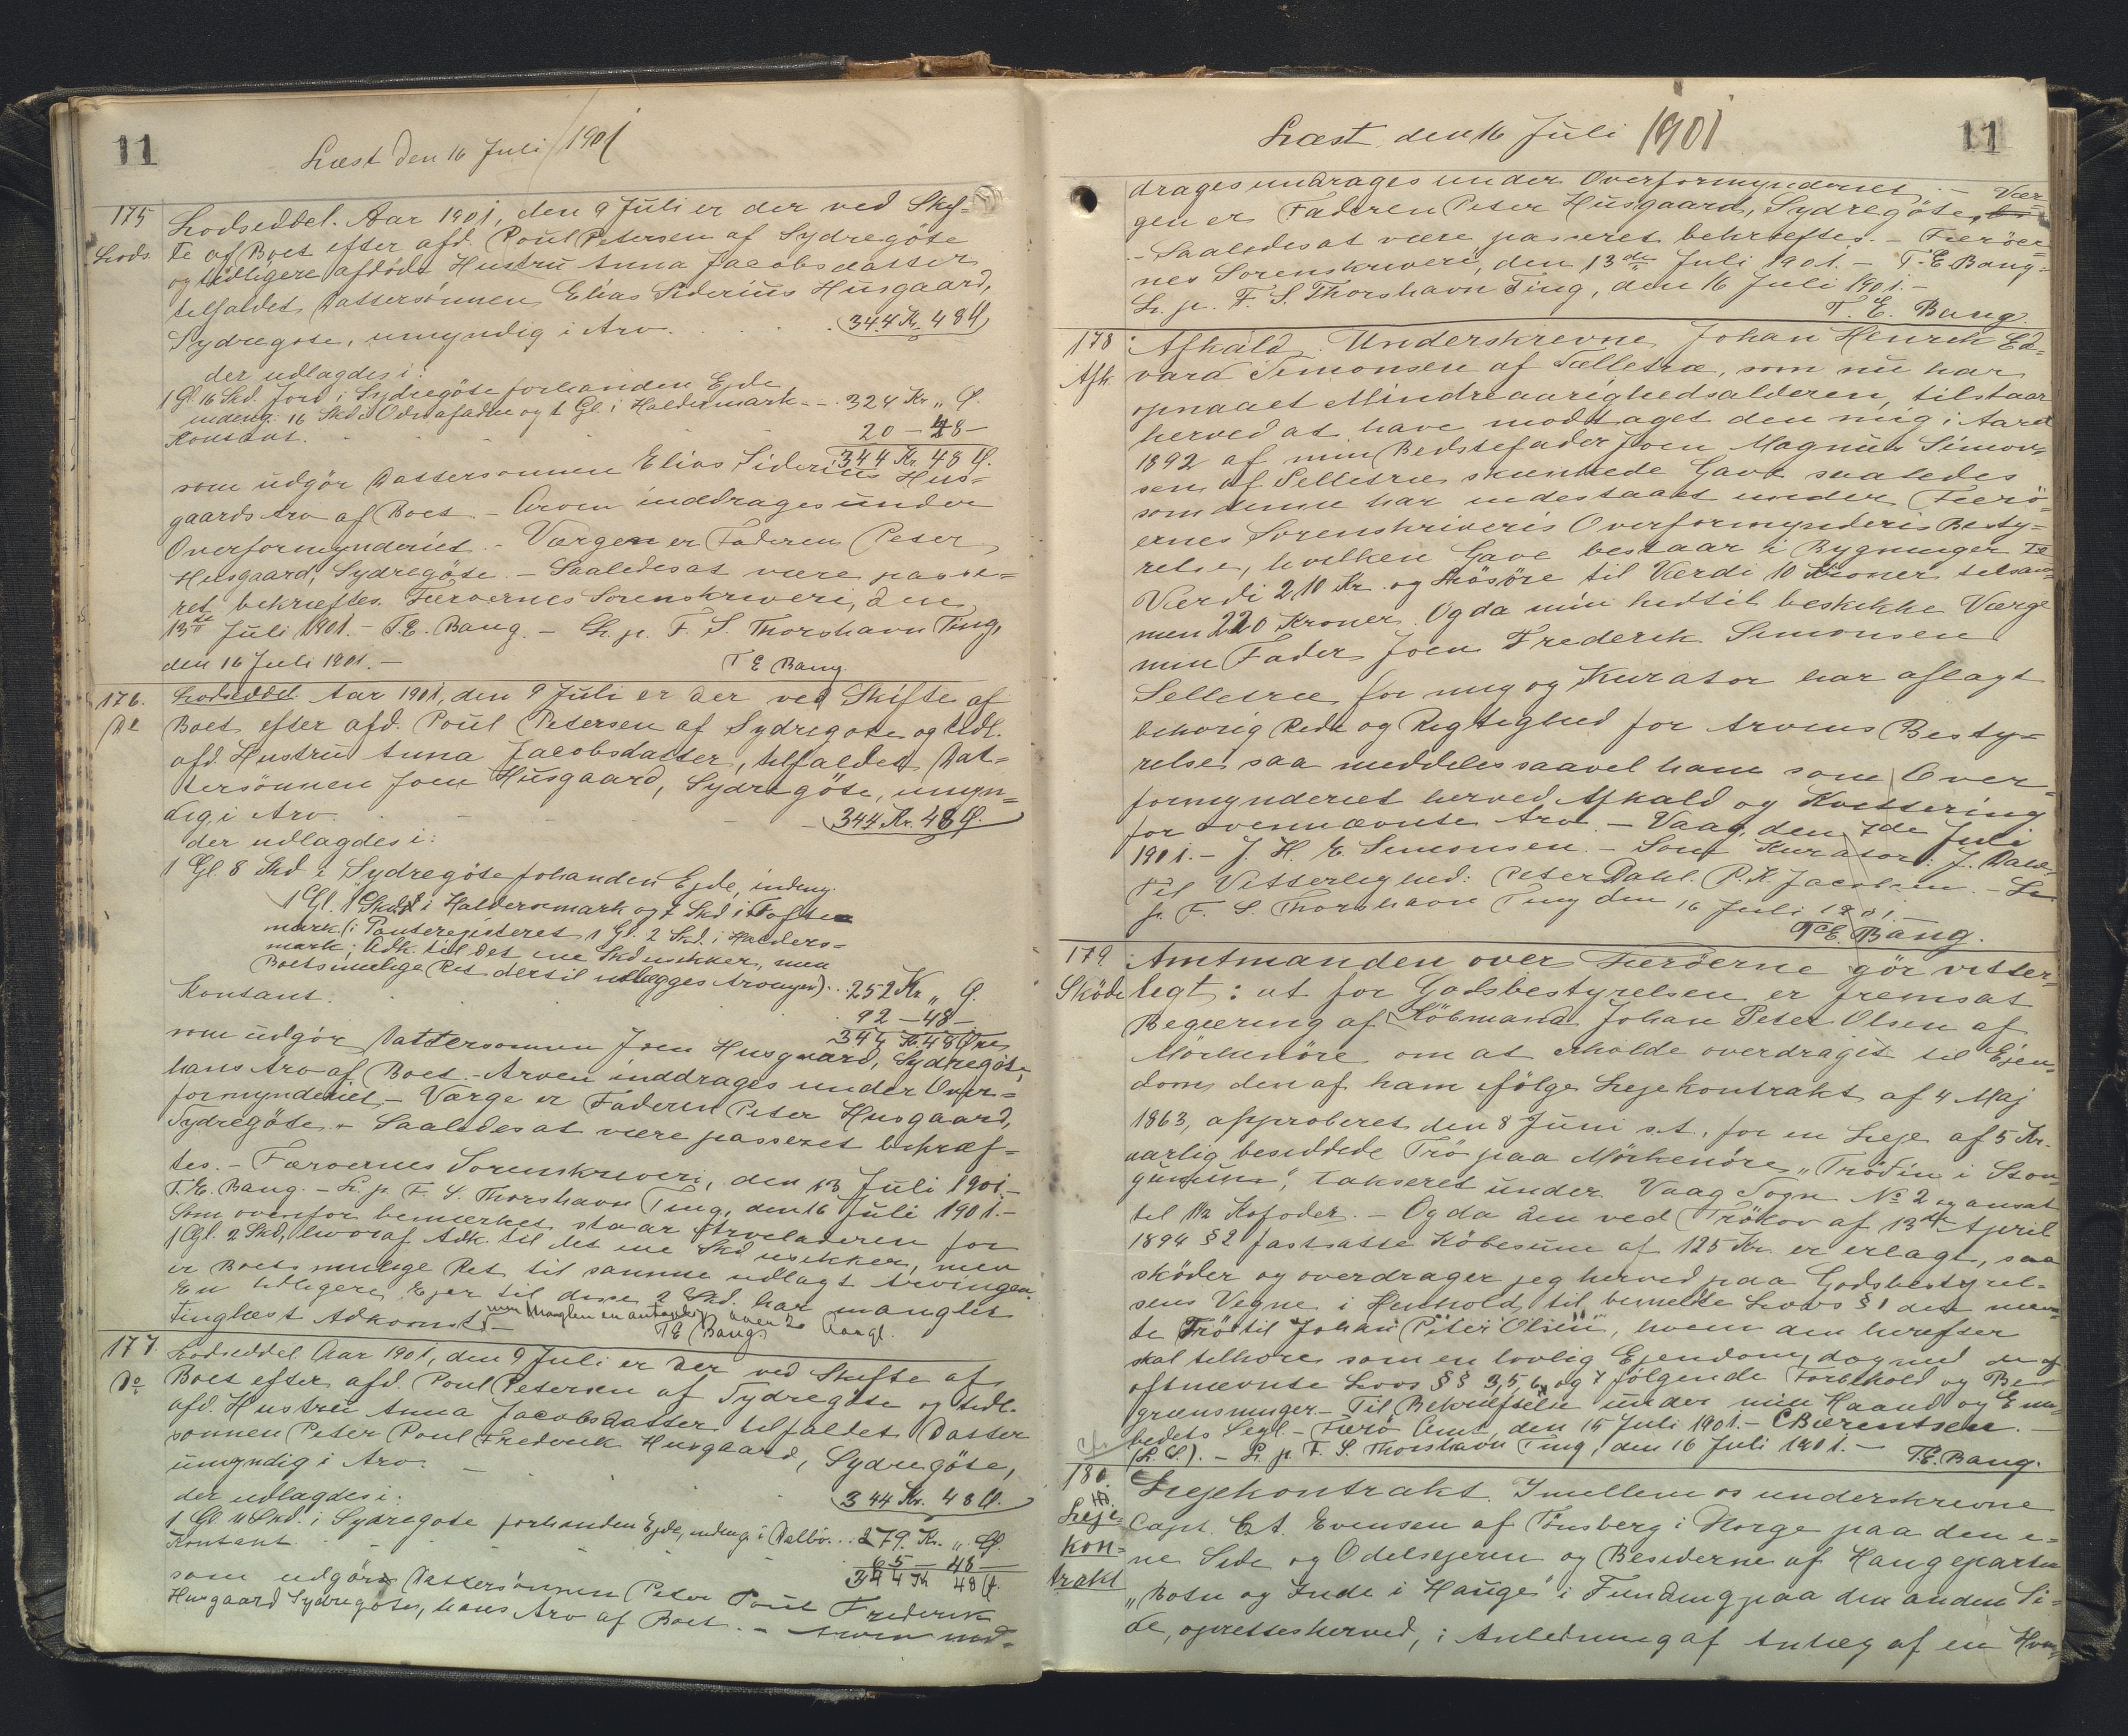 11
Læst den 16 Juli 1901
175
Lods.
Lodseddel. Aar 1901, den 9 Juli er der ved Skif-
te af Boet efter afd. Poul Petersen af Sydregöte
og tidligere afdöde Hustru Anna Jacobsdatter
tilfaldet Dattersönnen Elias Siderius Husgaard,
Sydregöte, umyndig i Arv . . . 344 Kr. 48 Ø.
der udlagdes i:
1 Gl. 16 Skd. Jord i Sydregöte forhanden Ejde,
indeng. 16 Skd i og 1 Gl. i Haldersmark . - . 324 Kr. „ Ø.
Kontant. 20 - 48 -
344 Kr. 48 Ø.
som udgör Dattersonnen Elias Siderius Hus-
gaards Arv af Boet. - Arven inddrages under
Overformynderiet. - Værgen er Faderen Peter
Husgaard, Sydregöte. - Saaledes at være passe-
ret bekræftes. Færoernes Sorenskriveri, den
13de Juli 1901. - T.E. Bang. - L. p. F. S. Thorshavn Ting,
den 16 Juli 1901. -
T E Bang.
176.
Do
Lodseddel. Aar 1901, den 9 Juli er der ved Skifte af
Boet efter afd. Poul Petersen af Sydregöte og tidl.
afd. Hustru Anna Jacobsdatter, tilfaldet Dat-
tersönnen Joen Husgaard, Sydregöte, umyn-
dig i Arv - - - 344 Kr. 48 Ø.
der udlagdes i:
1 Gl. 8 Skd i Sydregöte forhanden Ejde, indeng.
1 Gl. 1 Skd i Haldersmark og 7 Skd i Tofte
mark (i Panteregisteret 1 Gl. 2 Skd. i Halders-
mark; Adk. til det ene Skd usikker, men
Boets mulige Ret dertil udlægges Arvingen) . . . 252 Kr „ Ø.
Kontant. 92 - 48 -
344 Kr. 48 Øre
som udgör Dattersonnen Joen Husgaard, Sydregöte,
hans Arv af Boet. - Arven inddrages under Over-
formynderiet. - Værge er Faderen Peter Husgaard,
Sydregöte. - Saaledes at være passeret bekræf-
tes. - Færoernes Sorenskriveri, den 13 Juli 1901. -
T.E. Bang. - L. p. F. S. Thorshavn Ting, den 16 Juli 1901. -
Som ovenfor bemærket staar Arveladeren for
1 Gl. 2 Skd, hvoraf Adk. til det ene Skd usikker, men
er Boets mulige Ret til samme udlagt Arvingen.
En tidligere Ejer til disse 2 Skd. har manglet
tinglæst Adkomst, men Manglen er antagelig over 20 Aar gl.
T E Bang
177.
Do
Lodseddel. Aar 1901, den 9 Juli er der ved Skifte af
Boet efter afd. Poul Petersen af Sydregöte og tidl.
afd. Hustru Anna Jacobsdatter tilfaldet Datter
sonnen Peter Poul Frederik Husgaard, Sydregöte,
umyndig i Arv. - 344 Kr. 48 Ø.
der udlagdes i:
1 Gl. 11 Skd. i Sydregote forhanden Ejde, indeng. i Dalbö . . . 279 Kr. „ Ø.
Kontant 65 - 48
344 Kr 48 Ø.
som udgör Dattersönnen Peter Poul Frederik
Husgaard Sydregöte, hans Arv af Boet. - Arven ind-
11
Læst den 16 Juli 1901
drages under Overformynderiet. - Vær-
gen er Faderen Peter Husgaard, Sydregöte,
- Saaledes at være passeret bekræftes. - Færöer-
nes Sorenskriveri, den 13de Juli 1901. - T. E Bang.
L. p. F. S. Thorshavn Ting, den 16 Juli 1901. -
T. E. Bang.
178
Afk.
Afkald. Underskrevne Johan Henrik Ed-
vard Simonsen af Selletræ, som nu har
opnaaet Mindreaarighedsalderen, tilstaar
herved at have modtaget den mig i Aaret
1892 af min Bedstefader Joen Magnus Simon-
sen af Selletræ skænkede Gave saaledes
som denne har indestaaet under Færö-
ernes Sorenskriveris Overformynderis Besty-
relse, hvilken Gave bestaar i Bygninger til
Værdi 210 Kr. og Lösöre til Værdi 10 Kroner tilsam-
men 220 Kroner. Og da min hidtil beskikkede Værge
min Fader Joen Frederik Simonsen
Selletræ for mig og Kurator har aflagt
behörig Rede og Rigtighed for Arvens Besty-
relse, saa meddeles saavel ham som Over-
formynderiet herved Afkald og Kvittering
for ovennævnte Arv. - Vaag, den 7de Juli
1901. - J. H. E. Simonsen. - Som Kurator: J. Dahl.
Til Vitterlighed: Peter Dahl. P. K. Jacobsen. - L.
p. F. S. Thorshavn Ting den 16 Juli 1901. -
T.E. Bang.
179
Sköde
Amtmanden over Færöerne gör vitter-
legt: at for Godsbestyrelsen er fremsat
Begæring af Köbmand Johan Peter Olsen af
Mörkenöre om at erholde overdraget til Ejen-
dom, den af ham ifölge Lejekontrakt af 4 Maj
1863, approberet den 8 Juni s.A., for en Leje af 5 Kr.
aarlig besiddede Trö paa Mörkenöre „Trödin i Ston
gunum“, takseret under Vaag Sogn No 2 og ansat
til 1½ Kofoder. - Og da den ved Trölov af 13de April
1894 § 2 fastsatte Köbesum af 125 Kr. er erlagt, saa
sköder og overdrager jeg herved paa Godsbestyrel-
sens Vegne i Henhold til bemeldte Lovs § 1 den nævn-
te Trö til Johan Peter Olsen, hvem den herefter
skal tilhöre som en lovlig Ejendom, dog med de af
oftnævnte Lovs §§ 3, 5, 6 og 7 fölgende Forbehold og Be-
grænsninger. - Til Bekræftelse under min Haand og Em-
bedets Segl. - Færö Amt, den 15 Juli 1901. - C Bærentsen. -
(L. S.). - L. p. F. S. Thorshavn Ting, den 16 Juli 1901. -
T.E. Bang.
180.
Leje-
kon-
trakt
Lejekontrakt. Imellem os underskrevne
Capt. Evensen af Tönsberg i Norge paa den e-
ne Side og Odelsejeren og Besidderne af Haugeparten
„Botn og Inde i Hauge“ i Funding paa den anden Si-
de, oprettes herved, i Anledning af Anlæg af en Hval-